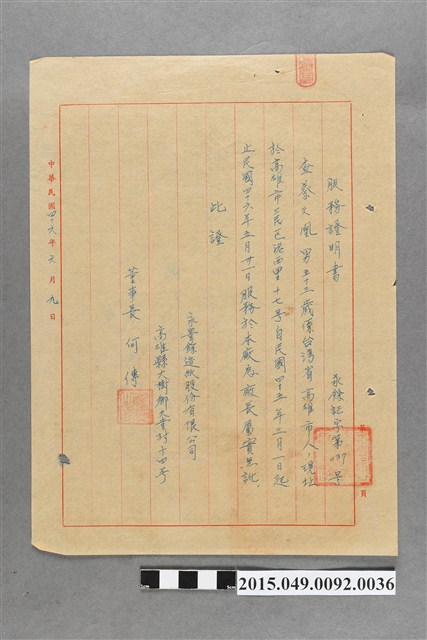 服務證明書
永餘証字第037号
第 頁
查蔡文凰男五十三歲係台灣省高雄市人,現址
於高雄市三民区港西里十七号自民國四十五年三月一日起
止民國四十六年五月廿一日服務於本廠為廠長屬實無訛,
此證
永豊餘造紙股份有限公司
高雄縣大樹鄉久堂巧十四号
董事長 何傳
中華民國四十六年六月九日
2015.049.0092.0036